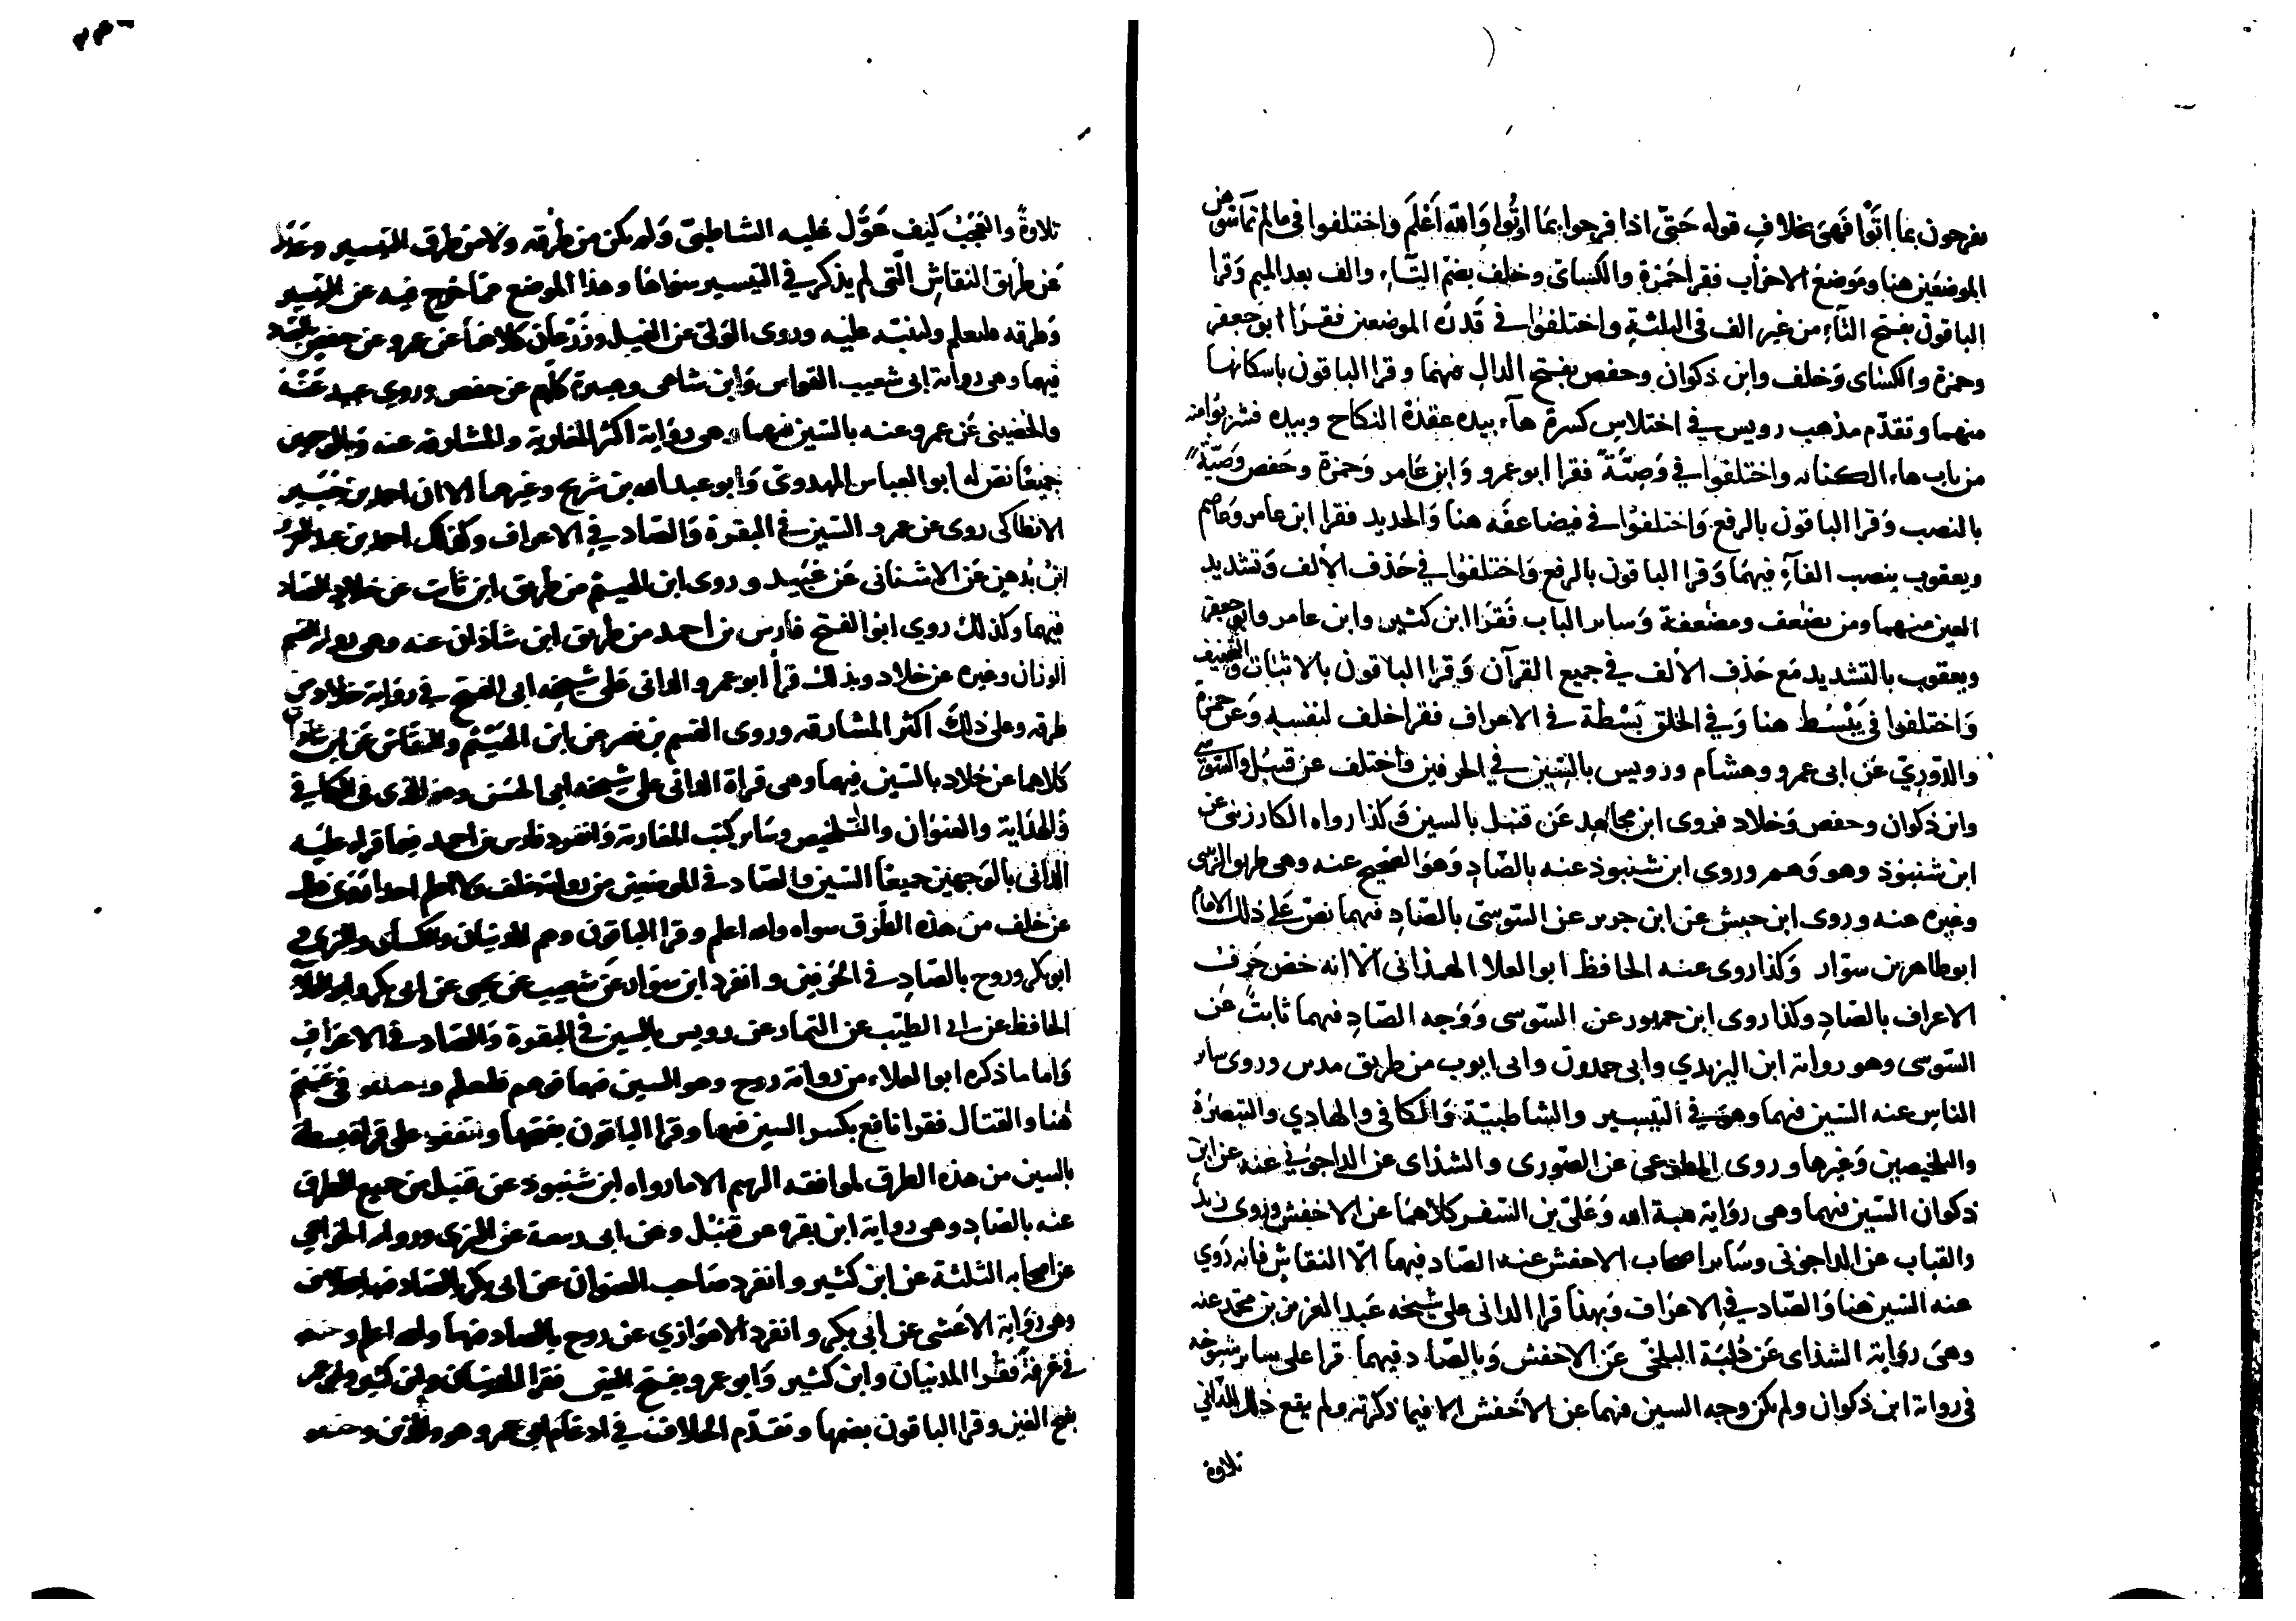 يفرحون بما اتوا فهي بخلاف قوله حتى اذا فرحوا بما اوتوا والله اعلم واختلفوا في مالم تماسوهن
الموضعين هنا وموضع الاحزاب فقرا حمزة والكسائ وخلف بضم التاء والف بعد الميم وقرا
الباقون بفتح التاء من غير الف في الثلثة واختلفوا في قدره الموضعين فقرا ابو جعفر
وحمزة والكسائ وخلف وابن ذكوان وحفص بفتح الدال منهما وقرا الباقون باسكانها
منهما وتقدم مذهب رويس في اختلاس كسرة هاء بيده عقدة النكاح وبيده فشربوا منه
من باب هاء الكنايه واختلفوا في وصية فقرا ابو عمرو وابن عامر وحمزة وحفص وصية
بالنصب وقرا الباقون بالرفع واختلفوا في فيضاعفه هنا والحديد فقرا ابن عامر وعاصم
ويعقوب بنصب الفاء فيهما وقرا الباقون بالرفع واختلفوا في حذف الالف وتشديد
العين منهما ومن يضعف ومضعفة وساير الباب فقرا ابن كثير وابن عامر وابو جعفر
ويعقوب بالتشديد مع حذف الالف في جميع القرآن وقرا الباقون بالاثبات والتخفيف
واختلفوا في يبسط هنا وفي الخلق بسطة في الاعراف فقرا خلف لنفسه وعن حمزة
والدوري عن ابى عمرو وهشام ورويس بالسين في الحرفين واختلف عن قنبل والسوسي
وابن ذكوان وحفص وخلاد فروى ابن مجاهد عن قنبل بالسين وكذا رواه الكارزيني عن
ابن شنبوذ وهو وهم وروى ابن شنبوذ عنه بالصاد وهو الصحيح عنه وهي طريق الزينبي
وغيره عنه وروى ابن حبش عن ابن جرير عن السوسي بالصاد فيهما نص على ذلك الامام
ابو طاهر بن سوار وكذا روى عنه الحافظ ابو العلا الهمذاني الا انه خص حرف
الاعراف بالصاد وكذا روى ابن جمهور عن السوسي ووجه الصاد فيهما ثابت عن
السوسى وهو رواية ابن اليزيدي وابي حمدون وابى ايوب من طريق مدين وروى ساير
الناس عنه السين فيهما وهو في التيسير والشاطبية والكافي والهادي والتبصرة
والتلخيصين وغيرها وروى المطوعي عن الصوري والشذاى عن الداجوني عنه عن ابن
ذكوان السين فيهما وهي رواية هبة الله وعلى بن السفر كلاهما عن الاخفش وروى زيد
والقباب عن الداجوني وساير اصحاب الاخفش عنه الصاد فيهما الا النقاش فانه روي
عنه السين هنا والصاد في الاعراف وبهذا قرا الداني على شيخه عبد العزيز بن محمد عنه
وهي رواية الشذاى عن دلبة البلخى عن الاخفش وبالصاد فيهما قرا على ساير شيوخه
في رواية ابن ذكوان ولم يكن وجه السين فيهما عن الاخفش الا فيما ذكرته ولم يقع ذلك للداني
تلاوة
تلاوة والعجب كيف عول عليه الشاطبي ولم يكن من طرقه ولا من طرق التيسير وعدل
عن طريق النقاش التي لم يذكر في التيسير سواها وهذا الموضع مما خرج فيه عن التيسير
وطرقه فليعلم ولينبه عليه وروى الولى عن الفيل وزرعان كلاهما عن عمرو عن حفص بالصاد
فيهما وهي رواية ابى شعيب القواس وابن شاهى وهبيرة كلهم عن حفص وروي عبيد عنه
والحضيني عن عمرو عنه بالسين فيهما وهي رواية اكثر المغاربة والمشارقه عنه وبالوجهين
جميعا نص له ابو العباس المهدوي وابو عبد الله بن شريح وغيرهما الا ان احمد بن جبير
الانطاكي روى عن عمرو السين في البقرة والصاد في الاعراف وكذلك احمد بن عبد العزيز
ابن بدهن عن الاشناني عن عبيد وروى ابن الهيثم من طريق ابن ثابت عن خلاد الصاد
فيهما وكذلك روي ابو الفتح فارس بن احمد من طريق ابن شاذان عنه وهي رواية القسم
الوزان وغيره عن خلاد وبذلك قرأ ابو عمرو الداني على شيخه ابى الفتح في رواية خلاد من
طرقه وعلى ذلك اكثر المشارقه وروى القسم بن نصر عن ابن الهيثم والنقاش عن ابن شاذان
كلاهما عن خلاد بالسين فيهما وهي قراة الداني على شيخه ابى الحسن وهو الذي في الكافي
والهداية والعنوان والتلخيص وساير كتب المغاربة وانفرد فارس بن احمد فيما قراه عليه
الداني بالوجهين جميعا السين والصاد في الموضعين من رواية خلف ولا اعلم احدا روى ذلك
عن خلف من هذه الطرق سواه والله اعلم وقرا الباقون وهم المدنيان والكسائي والبزي و
ابو بكر وروح بالصاد في الحرفين وانفرد ابن سوار عن شعيب عن يحيى عن ابى بكر وابو العلاء
الحافظ عن ابى الطيب عن التمار عن رويس بالسين في البقرة والصاد في الاعراف
واما ما ذكره ابو العلاء من رواية روح وهو السين فيهما فوهم فليعلم واختلفوا في عسيتم
هنا والقتال فقرا نافع بكسر السين فيهما وقرا الباقون بفتحها واتفقوا على قراة بسطة
بالسين من هذه الطرق لموافقه الرسم الا ما رواه ابن شنبوذ عن قنبل من جميع الطرق
عنه بالصاد وهي رواية ابن بقره عن قنبل وعن ابى ربيعة عن البزي ورواية الخزاعي
عن اصحابه الثلثة عن ابن كثير وانفرد صاحب العنوان عن ابى بكر بالصاد فيها بخلاف
وهي رواية الاعشى عن ابى بكر وانفرد الاهوازي عن روح بالصاد فيها والله اعلم واختلفوا
في غرفة فقرا المدنيان وابن كثير وابو عمرو بفتح الغين
بفتح الغين وقرا الباقون بضمها وتقدم الخلاف في ادغام ابى عمرو هو والذين واختلفوا